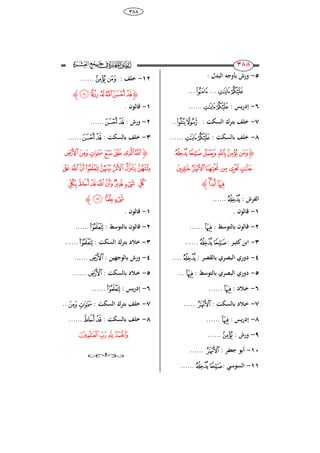 ٣٨٨
٣٨٨
٥- ورش بأوجه البدل :
عَلَيْكُمْ ءَايَٰتِ ... ءَامَنُوا۟ ...
٦- إدريس : عَلَيْكُمْ ءَايَٰتِ ......
٧- خلف بترك السكت :
٨- خلف بالسكت : عَلَيْكُمْ ءَايَٰتِ ......
﴿ وَمَن يُؤْمِنۢ بِٱللَّهِ وَيَعْمَلْ صَٰلِحًا يُدْخِلْهُ
جَنَّٰتٍ تَجْرِى مِن تَحْتِهَا ٱلْأَنْهَٰرُ خَٰلِدِينَ
فِيهَآ أَبَدًا ﴾
الفرش : يُدْخِلْهُ ......
١- قالون .
٢- قالون بالتوسط : فِيهَآ ......
٣- ابن كثير : صَٰلِحًا يُدْخِلْهُ ......
٤- دوري البصري بالقصر : يُدْخِلْهُ ....
٥- دوري البصري بالتوسط : فِيهَآ ...
٦- خلاد : فِيهَآ ......
٧- خلاد بالسكت : ٱلْأَنْهَٰرُ .....
٨- إدريس : فِيهَآ ......
٩- ورش : يُؤْمِنۢ ......
١٠- أبو جعفر : ٱلْأَنْهَٰرُ ......
١١- السوسي : صَٰلِحًا يُدْخِلْهُ ......
١٢- خلف : وَمَن يُؤْمِنۢ ......
﴿ قَدْ أَحْسَنَ ٱللَّهُ لَهُۥ رِزْقًا ﴾
١- قالون .
٢- ورش : قَدْ أَحْسَنَ ......
٣- خلف بالسكت : قَدْ أَحْسَنَ ......
﴿ ٱللَّهُ ٱلَّذِى خَلَقَ سَبْعَ سَمَٰوَٰتٍ وَمِنَ ٱلْأَرْضِ
مِثْلَهُنَّ يَتَنَزَّلُ ٱلْأَمْرُ بَيْنَهُنَّ لِتَعْلَمُوٓا۟ أَنَّ ٱللَّهَ عَلَىٰ
كُلِّ شَىْءٍ قَدِيرٌ وَأَنَّ ٱللَّهَ قَدْ أَحَاطَ بِكُلِّ
شَىْءٍ عِلْمًۢا ﴾
١- قالون .
٢- قالون بالتوسط : لِتَعْلَمُوٓا۟ ......
٣- خلاد بترك السكت : لِتَعْلَمُوٓا۟ ......
٤- ورش بالوجهين : ٱلْأَرْضِ ......
٥- خلاد بالسكت : ٱلْأَرْضِ ......
٦- إدريس : لِتَعْلَمُوٓا۟ ......
٧- خلف بترك السكت : سَمَٰوَٰتٍ وَمِنَ ..
٨- خلف بالسكت : قَدْ أَحَاطَ ......
وَٱلْحَمْدُ لِلَّهِ رَبِّ ٱلْعَٰلَمِينَ